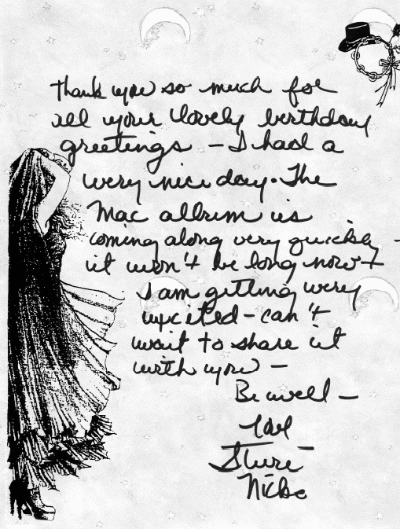 Thank you so much for
all your lovely birthday
greetings – I had a
very nice day. The
Mac album is
coming along very quickly –
it won't be long now +
I am getting very
excited – can't
wait to share it
with you –
Be well –
Love
Stevie
Nicks